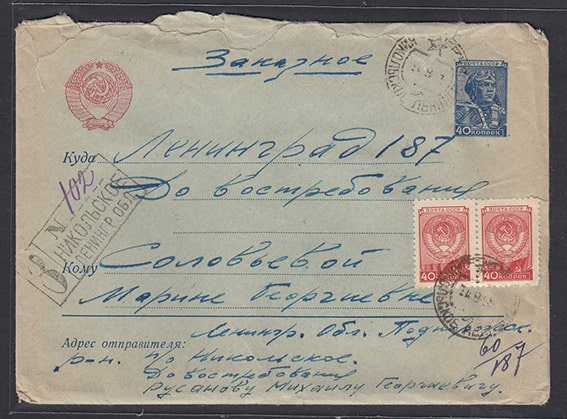 Заказное
ПОЧТА СССР
40 КОПЕЕК
Куда Ленинград 187
До востребования
№ 102
НИКОЛЬСКОЕ
ЛЕНИНГР. ОБЛ.
ПОЧТА СССР
40 КОПЕЕК
ПОЧТА СССР
40 КОПЕЕК
Кому Соловьевой
Марине Георгиевне
Адрес отправителя: Ленингр. Обл.
р-н. п/о Никольское.
До востребования
Русанову Михаилу Георгиевичу.
60
187